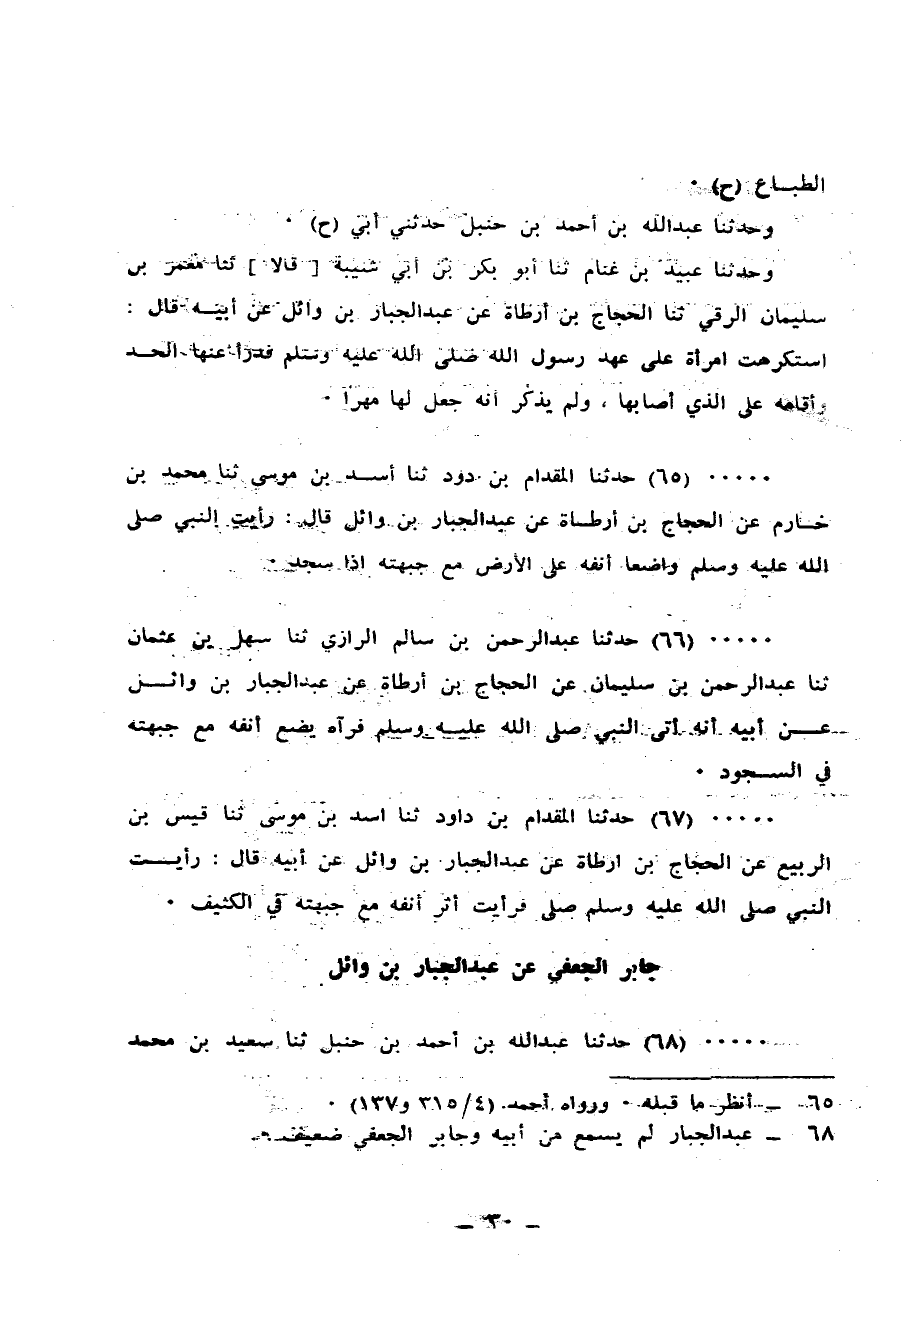 الطبـــاع (ح) ٠
وحدثنا عبدالله بن أحمد بن حنبل حدثني أبي (ح) ٠
وحدثنا عبيد بن غنام ثنا أبو بكر بن أبي شيبة [ قالا ] ثنا معمر بن
سليمان الرقي ثنا الحجاج بن أرطاة عن عبدالجبار بن وائل عن أبيـــه قال :
استكرهت امرأة على عهد رسول الله صلى الله عليه وسلم فدرأ عنها الحـد
وأقامه على الذي أصابها ، ولم يذكر أنه جعل لها مهرا ٠
٠٠٠٠٠ (٦٥) حدثنا المقدام بن دود ثنا أســـد بن موسى ثنا محمد بن
خـــارم عن الحجاج بن أرطـــاة عن عبدالجبار بن وائل قال : رأيت النبي صلى
الله عليه وسلم واضعا أنفه على الأرض مع جبهته اذا سجد ٠
٠٠٠٠٠ (٦٦) حدثنا عبدالرحمن بن سالم الرازي ثنا سهل بن عثمان
ثنا عبدالرحمن بن سليمان عن الحجاج بن أرطاة عن عبدالجبار بن وائـــل
عـــن أبيه أنه أتى النبي صلى الله عليـــه وسلم فرآه يضع أنفه مع جبهته
في الســـجود ٠
٠٠٠٠٠ (٦٧) حدثنا المقدام بن داود ثنا اسد بن موسى ثنا قيس بن
الربيع عن الحجاج بن ارطاة عن عبدالجبار بن وائل عن أبيه قال : رأيـــت
النبي صلى الله عليه وسلم صلى فرأيت أثر أنفه مع جبهته في الكثيف ٠
جابر الجعفي عن عبدالجبار بن وائل
٠٠٠٠٠ (٦٨) حدثنا عبدالله بن أحمد بن حنبل ثنا سعيد بن محمد
٦٥ ــ أنظر ما قبله ٠ ورواه أحمد (٣١٥/٤ و١٣٧) ٠
٦٨ ــ عبدالجبار لم يسمع من أبيه وجابر الجعفي ضعيف ٠
ــ ٣٠ ــ